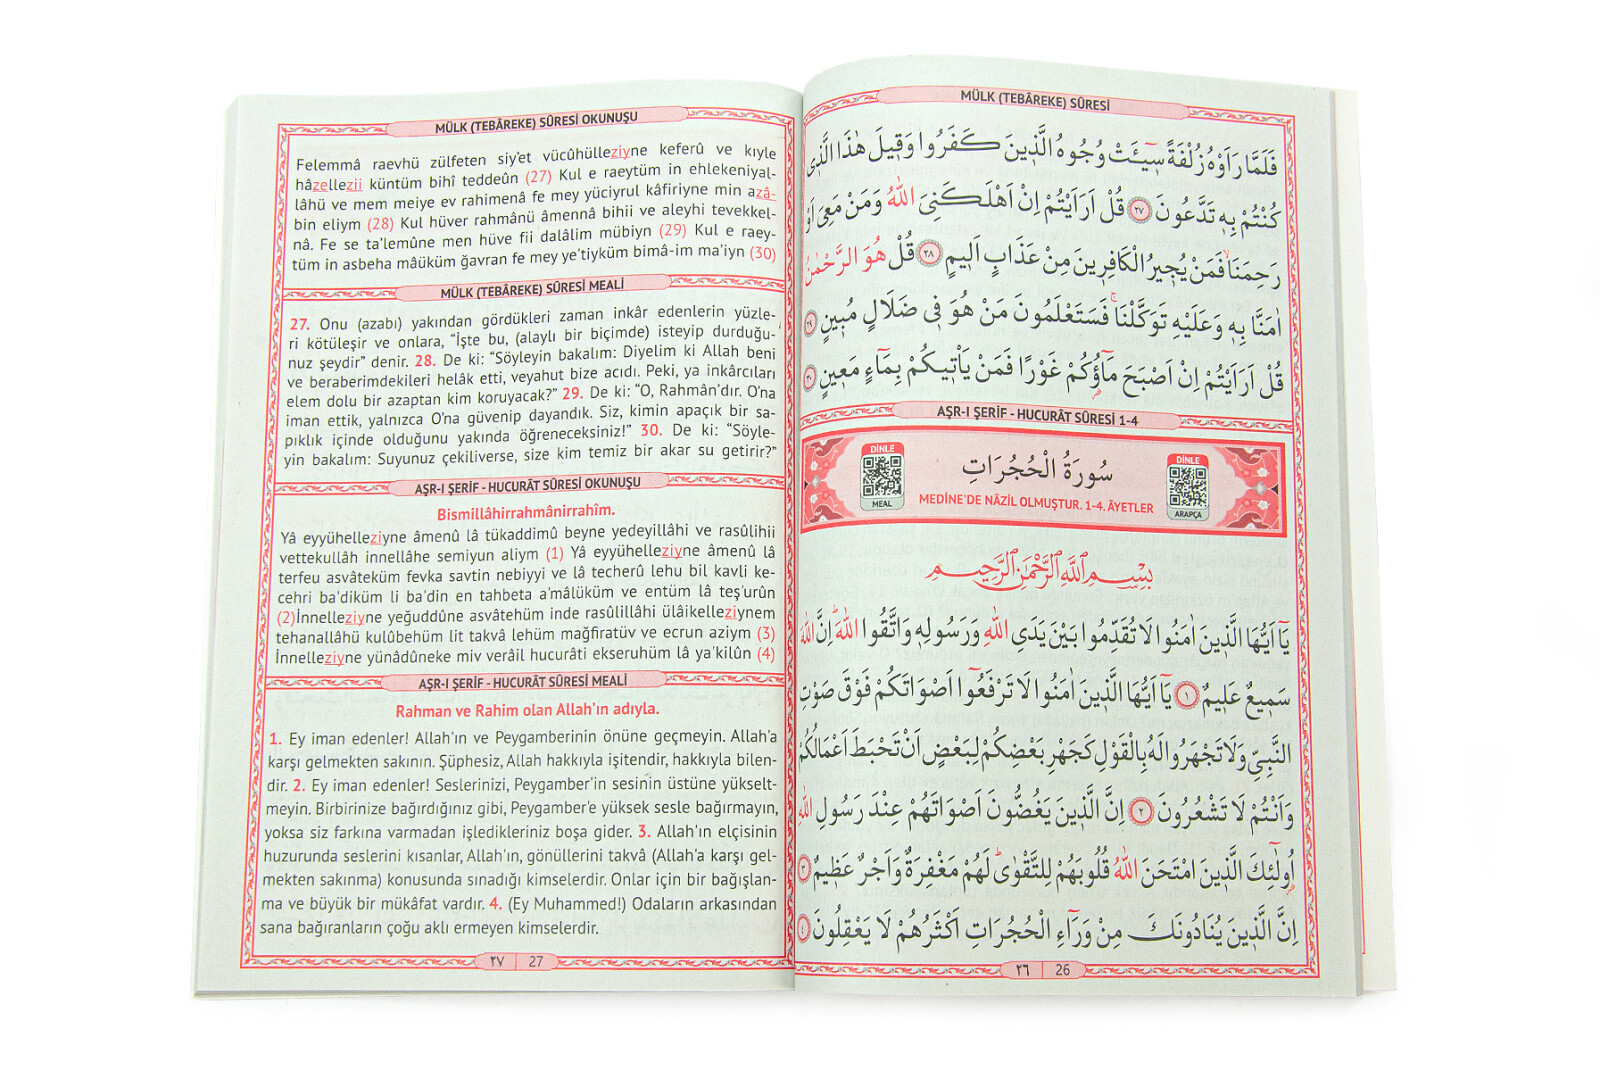 MÜLK (TEBÂREKE) SÛRESİ OKUNUŞU
Felemmâ raevhü zülfeten siy'et vücûhülleziyne keferû ve kıyle
hâzellezii küntüm bihî teddeûn (27) Kul e raeytüm in ehlekeniyal-
lâhü ve mem meiye ev rahimenâ fe mey yüciyrul kâfiriyne min azâ-
bin eliym (28) Kul hüver rahmânü âmennâ bihii ve aleyhi tevekkel-
nâ. Fe se ta'lemûne men hüve fii dalâlim mübiyn (29) Kul e raey-
tüm in asbeha mâüküm ğavran fe mey ye'tiyküm bimâ-im ma'iyn (30)
MÜLK (TEBÂREKE) SÛRESİ MEALİ
27. Onu (azabı) yakından gördükleri zaman inkâr edenlerin yüzle-
ri kötüleşir ve onlara, “İşte bu, (alaylı bir biçimde) isteyip durduğu-
nuz şeydir” denir. 28. De ki: “Söyleyin bakalım: Diyelim ki Allah beni
ve beraberimdekileri helâk etti, veyahut bize acıdı. Peki, ya inkârcıları
elem dolu bir azaptan kim koruyacak?” 29. De ki: “O, Rahmân'dır. O'na
iman ettik, yalnızca O'na güvenip dayandık. Siz, kimin apaçık bir sa-
pıklık içinde olduğunu yakında öğreneceksiniz!” 30. De ki: “Söyle-
yin bakalım: Suyunuz çekiliverse, size kim temiz bir akar su getirir?”
AŞR-I ŞERİF - HUCURÂT SÛRESİ OKUNUŞU
Bismillâhirrahmânirrahîm.
Yâ eyyühelleziyne âmenû lâ tükaddimû beyne yedeyillâhi ve rasûlihii
vettekullâh innellâhe semiyun aliym (1) Yâ eyyühelleziyne âmenû lâ
terfeu asvâteküm fevka savtin nebiyyi ve lâ techerû lehu bil kavli ke-
cehri ba'diküm li ba'din en tahbeta a'mâlüküm ve entüm lâ teş'urûn
(2)İnnelleziyne yeğuddûne asvâtehüm inde rasûlillâhi ülâikelleziynem
tehanallâhü kulûbehüm lit takvâ lehüm mağfiratüv ve ecrun aziym (3)
İnnelleziyne yünâdûneke miv verâil hucurâti ekseruhüm lâ ya'kilûn (4)
AŞR-I ŞERİF - HUCURÂT SÛRESİ MEALİ
Rahman ve Rahim olan Allah'ın adıyla.
1. Ey iman edenler! Allah'ın ve Peygamberinin önüne geçmeyin. Allah'a
karşı gelmekten sakının. Şüphesiz, Allah hakkıyla işitendir, hakkıyla bilen-
dir. 2. Ey iman edenler! Seslerinizi, Peygamber'in sesinin üstüne yükselt-
meyin. Birbirinize bağırdığınız gibi, Peygamber'e yüksek sesle bağırmayın,
yoksa siz farkına varmadan işledikleriniz boşa gider. 3. Allah'ın elçisinin
huzurunda seslerini kısanlar, Allah'ın, gönüllerini takvâ (Allah'a karşı gel-
mekten sakınma) konusunda sınadığı kimselerdir. Onlar için bir bağışlan-
ma ve büyük bir mükâfat vardır. 4. (Ey Muhammed!) Odaların arkasından
sana bağıranların çoğu aklı ermeyen kimselerdir.
٢٧ 27
MÜLK (TEBÂREKE) SÛRESİ
فَلَمَّا رَاَوْهُ زُلْفَةً سٖٓيـَٔتْ وُجُوهُ الَّذٖينَ كَفَرُوا وَقٖيلَ هٰذَا الَّذٖي
كُنْتُمْ بِهٖ تَدَّعُونَ ٢٧ قُلْ اَرَاَيْتُمْ اِنْ اَهْلَكَنِيَ اللّٰهُ وَمَنْ مَعِيَ اَوْ
رَحِمَنَا فَمَنْ يُجٖيرُ الْكَافِرٖينَ مِنْ عَذَابٍ اَلٖيمٍ ٢٨ قُلْ هُوَ الرَّحْمٰنُ
اٰمَنَّا بِهٖ وَعَلَيْهِ تَوَكَّلْنَاۚ فَسَتَعْلَمُونَ مَنْ هُوَ فٖي ضَلَالٍ مُبٖينٍ ٢٩
قُلْ اَرَاَيْتُمْ اِنْ اَصْبَحَ مَٓاؤُ۬كُمْ غَوْرًا فَمَنْ يَأْتٖيكُمْ بِمَٓاءٍ مَعٖينٍ ٣٠
AŞR-I ŞERİF - HUCURÂT SÛRESİ 1-4
DİNLE
MEAL
سُورَةُ الْحُجُرَاتِ
MEDİNE'DE NÂZİL OLMUŞTUR. 1-4. ÂYETLER
DİNLE
ARAPÇA
بِسْمِ اللّٰهِ الرَّحْمٰنِ الرَّحٖيمِ
يَٓا اَيُّهَا الَّذٖينَ اٰمَنُوا لَا تُقَدِّمُوا بَيْنَ يَدَيِ اللّٰهِ وَرَسُولِهٖ وَاتَّقُوا اللّٰهَؕ اِنَّ اللّٰهَ
سَمٖيعٌ عَلٖيمٌ ١ يَٓا اَيُّهَا الَّذٖينَ اٰمَنُوا لَا تَرْفَعُٓوا اَصْوَاتَكُمْ فَوْقَ صَوْتِ
النَّبِيِّ وَلَا تَجْهَرُوا لَهُ بِالْقَوْلِ كَجَهْرِ بَعْضِكُمْ لِبَعْضٍ اَنْ تَحْبَطَ اَعْمَالُكُمْ
وَاَنْتُمْ لَا تَشْعُرُونَ ٢ اِنَّ الَّذٖينَ يَغُضُّونَ اَصْوَاتَهُمْ عِنْدَ رَسُولِ اللّٰهِ
اُولٰٓئِكَ الَّذٖينَ امْتَحَنَ اللّٰهُ قُلُوبَهُمْ لِلتَّقْوٰىؕ لَهُمْ مَغْفِرَةٌ وَاَجْرٌ عَظٖيمٌ ٣
اِنَّ الَّذٖينَ يُنَادُونَكَ مِنْ وَرَٓاءِ الْحُجُرَاتِ اَكْثَرُهُمْ لَا يَعْقِلُونَ ٤
٢٦ 26